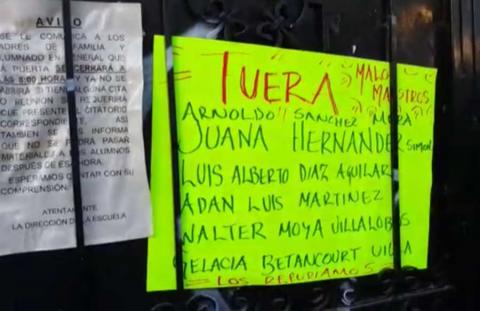 AVISO
SE LE COMUNICA A LOS
PADRES DE FAMILIA Y
ALUMNADO EN GENERAL QUE
LA PUERTA SE CERRARÁ A
LAS 8:00 HORAS Y YA NO SE
ABRIRÁ SI TIENE ALGUNA CITA
O REUNIÓN SE REQUERIRÁ
QUE PRESENTE EL CITATORIO
CORRESPONDIENTE. ASÍ
TAMBIÉN SE LES INFORMA
QUE NO SE PODRÁ PASAR
MATERIALES A LOS ALUMNOS
DESPUÉS DE ESA HORA.
ESPERAMOS CONTAR CON SU
COMPRENSIÓN.
ATENTAMENTE
LA DIRECCIÓN DE LA ESCUELA
= "FUERA" =
MALOS
MAESTROS
ARNOLDO SANCHEZ MORA
JUANA HERNANDEZ SIMON
LUIS ALBERTO DIAZ AGUILAR
ADAN LUIS MARTINEZ
WALTER MOYA VILLALOBOS
GELACIA BETANCOURT VILLA
= LOS REPUDIAMOS =